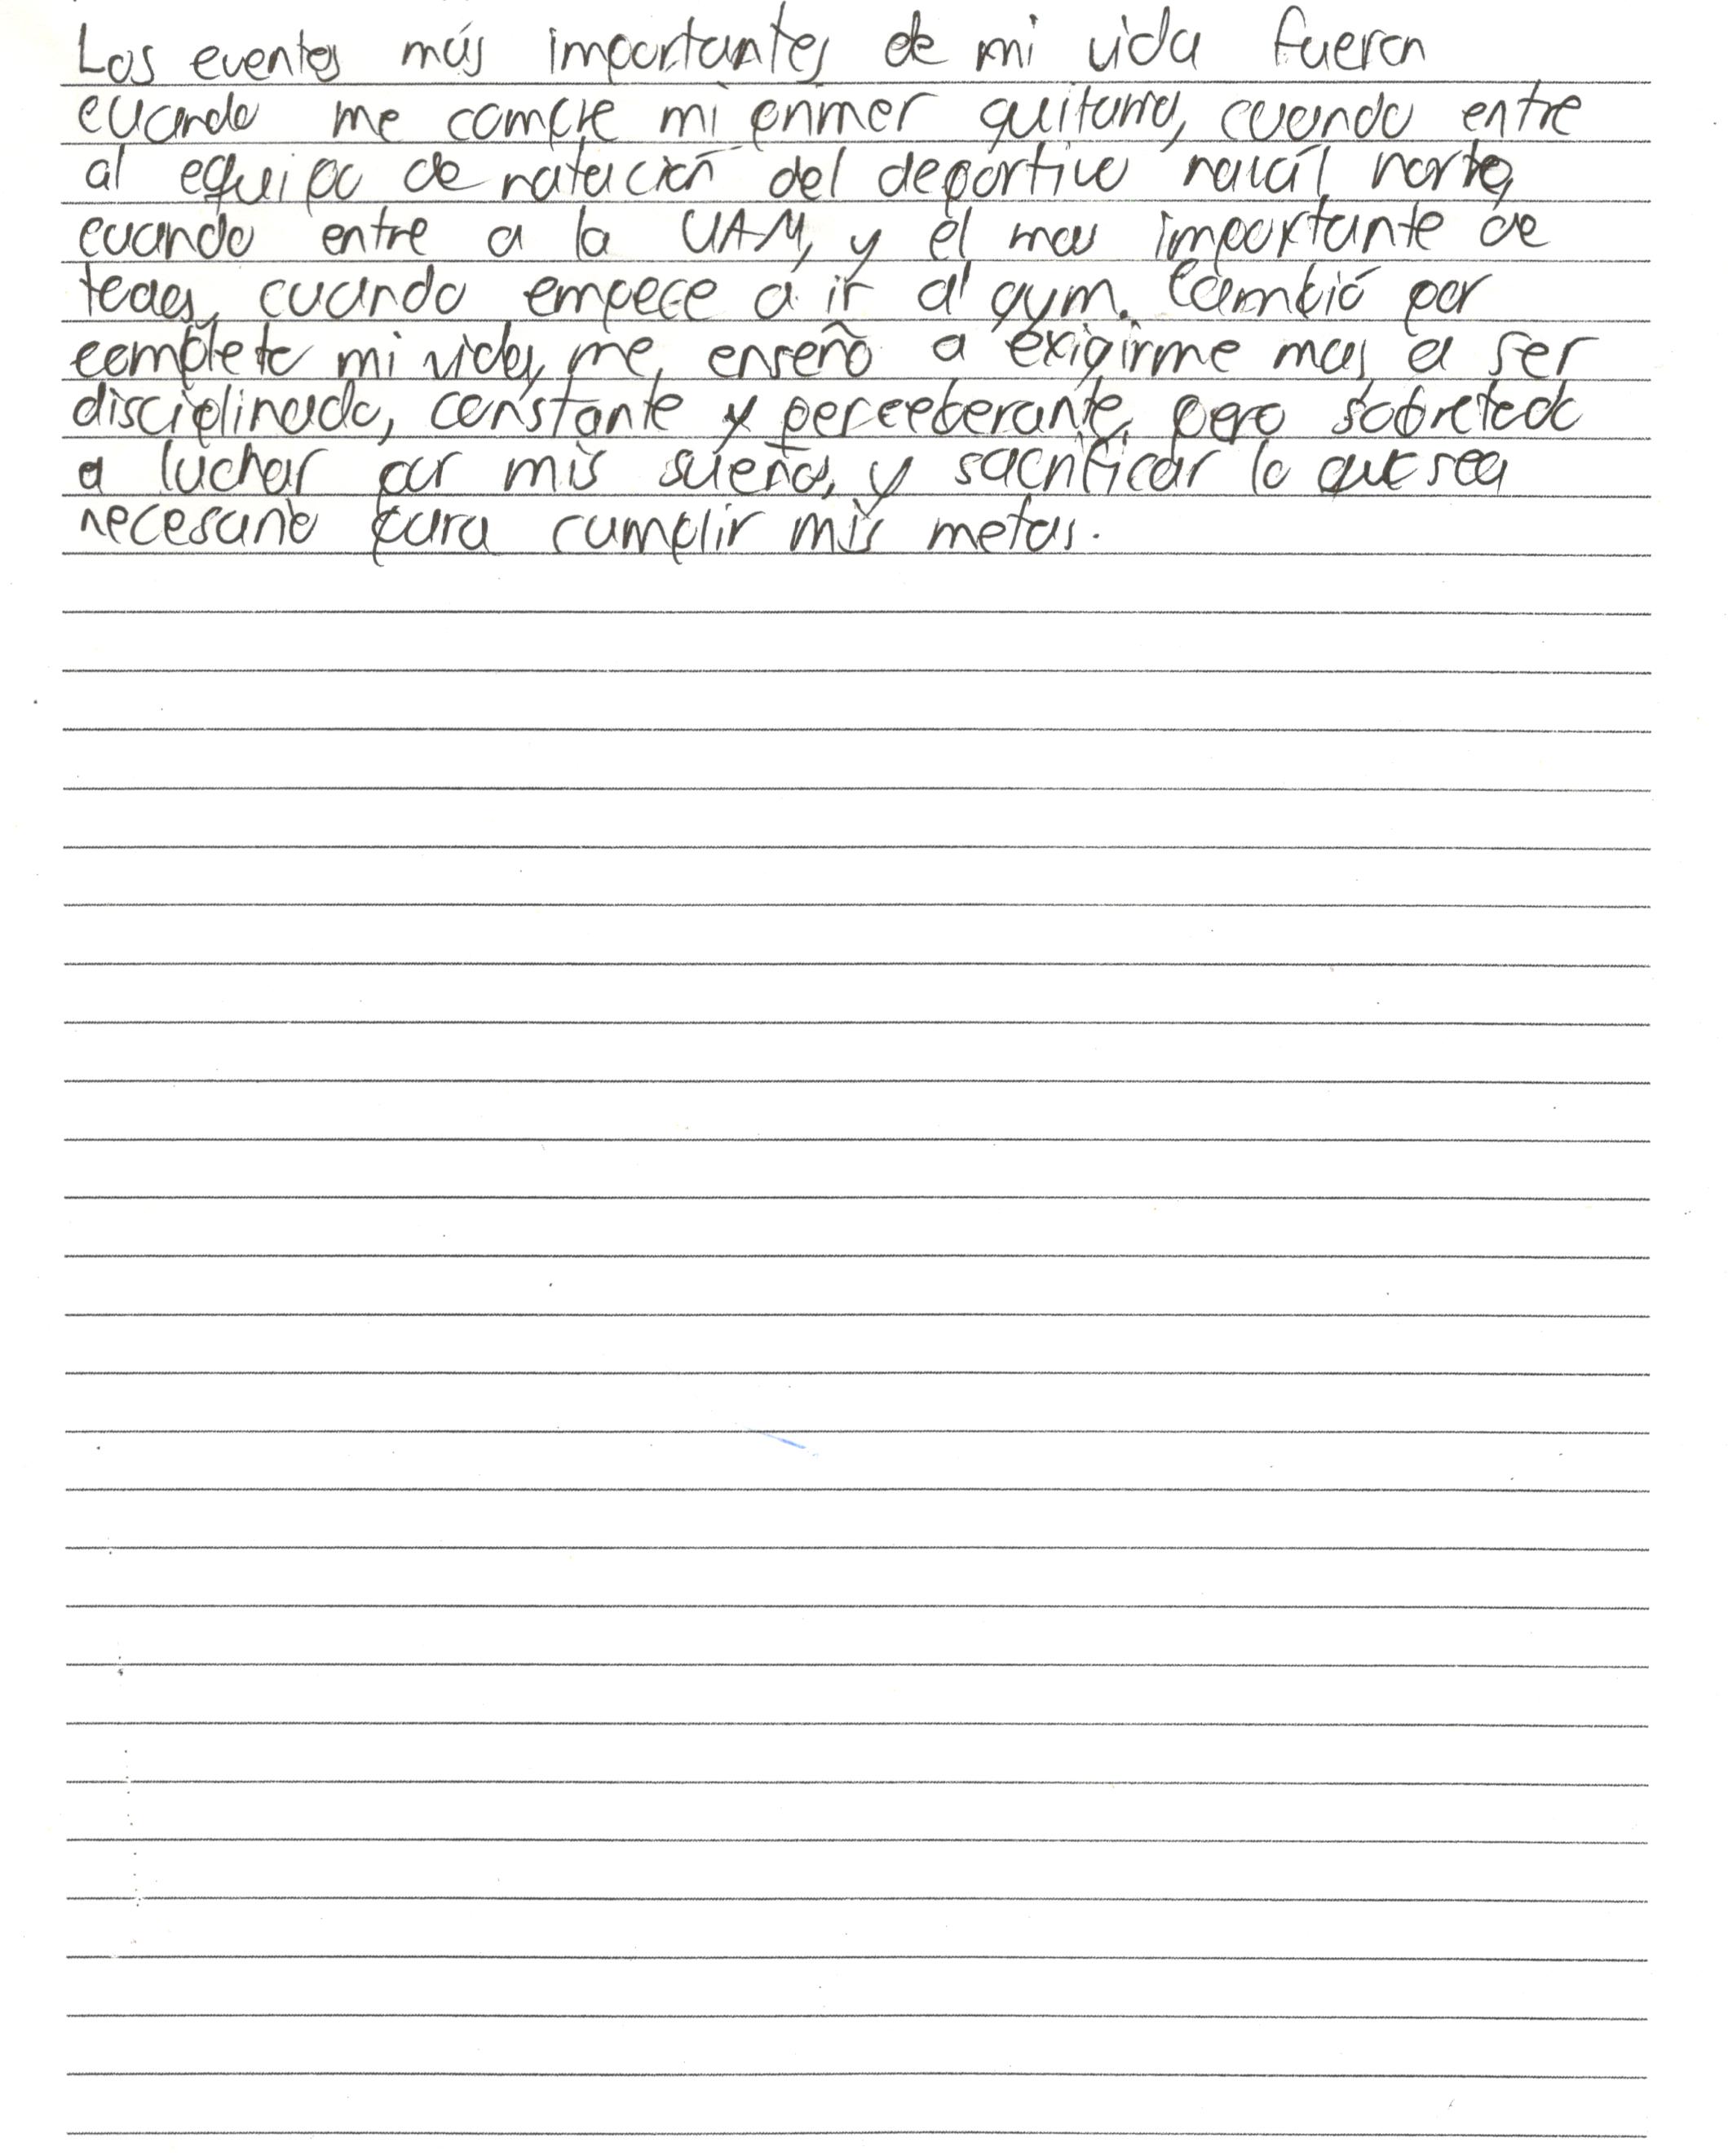 Los eventos más importantes de mi vida fueron
cuando me compre mi primer guitarra, cuando entre
al equipo de natación del deportivo naval norte,
cuando entre a la UAM, y el mas importante de
todos, cuando empece a ir al gym. Cambió por
completo mi vida, me enseño a exigirme mas, a ser
disciplinado, constante y perceberante, pero sobretodo
a luchar por mis sueños, y sacrificar lo que sea
necesario para cumplir mis metas.